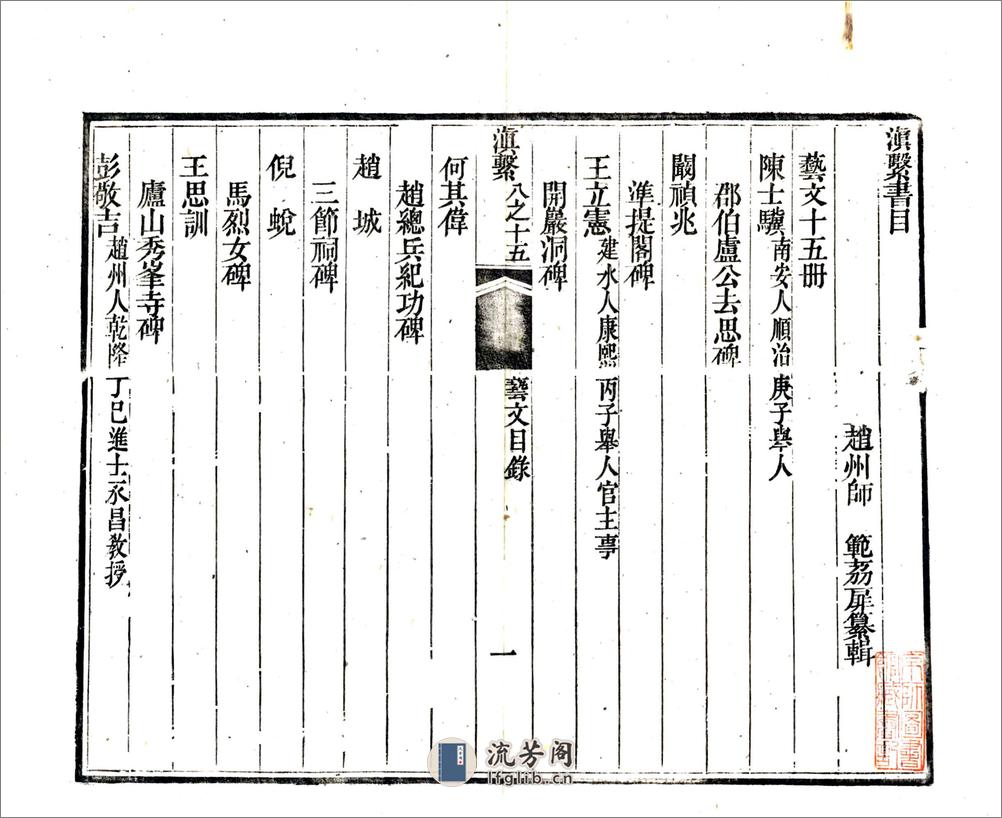 滇繫書目
趙州師　範荔扉纂輯
藝文十五册
陳士驥南安人順治庚子舉人
郡伯盧公去思碑
闞禎兆
準提閣碑
王立憲建水人康熙丙子舉人官主事
開巖洞碑
滇繫　八之十五　藝文目錄　一
何其偉
趙總兵紀功碑
趙　城
三節祠碑
倪　蛻
馬烈女碑
王思訓
盧山秀峯寺碑
彭敬吉趙州人乾隆丁巳進士永昌教授
流芳阁
lfglib.cn